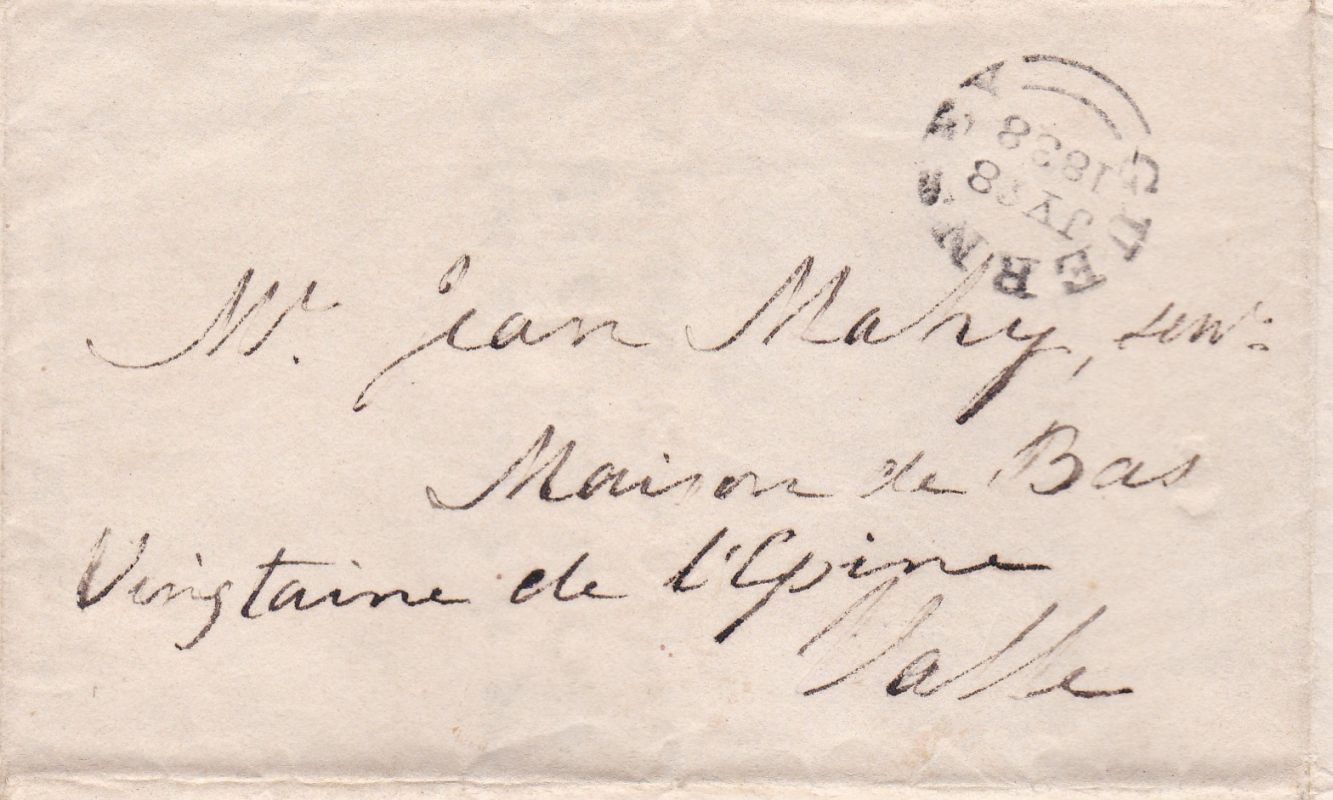 GUERNSEY
JY 28
1838
Mr. Jean Mahy, senr.
Maison de Bas
Vingtaine de l'Epine
Valle